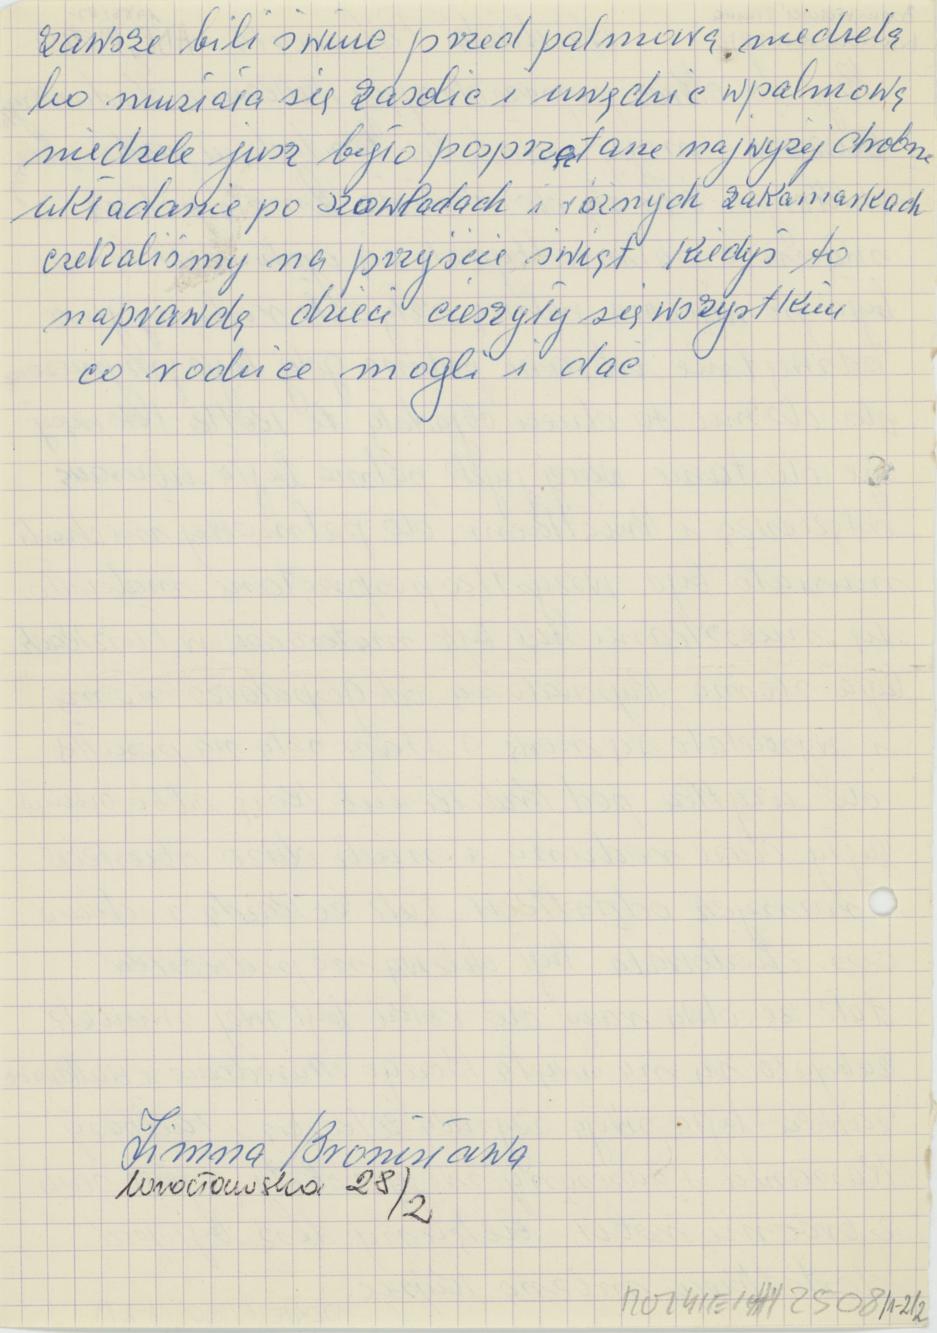 zawsze bili świnie przed palmową niedzielą
bo musiała się zasolic i uwędzic wpalmową
niedziele jusz było posprzątane najwyżej drobne
układanie po szowładach i rożnych zakamarkach
czekaliśmy na przyjście świąt Kiedyś to
naprawdę dzieci cieszyły się wszystkim
co rodzice mogli i dać
Zimna Bronisława
Wrocławska 28/2
2508/1-2/2